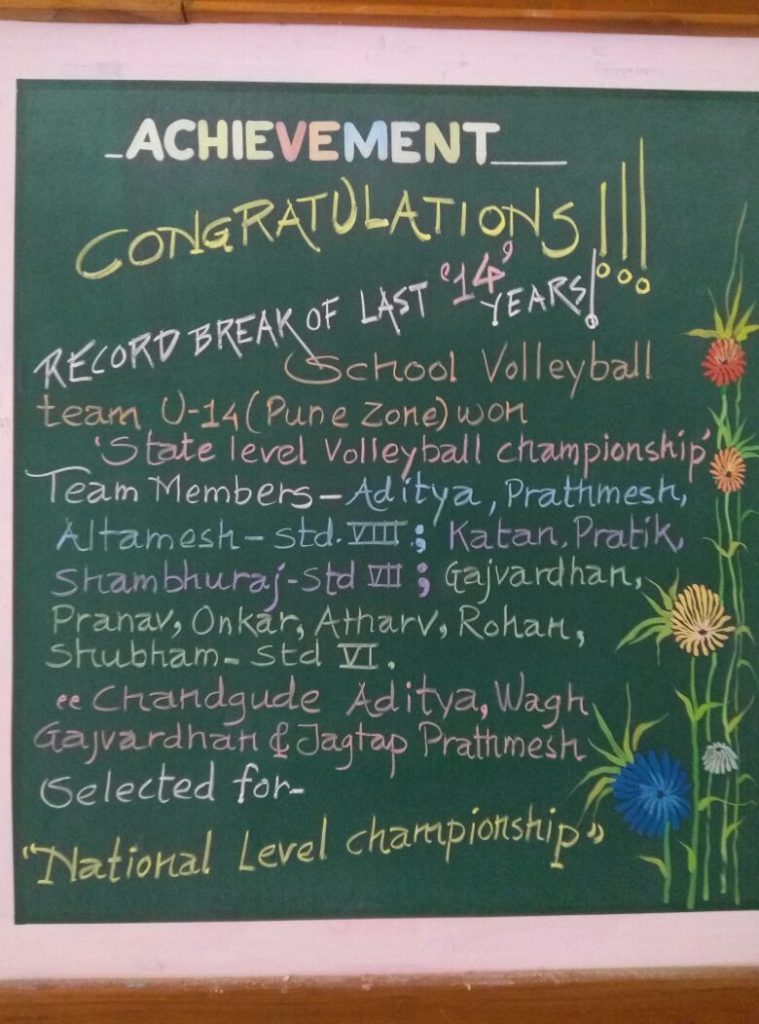 ACHIEVEMENT
CONGRATULATIONS!!!
RECORD BREAK OF LAST '14' YEARS!
School Volleyball
team U-14 (Pune Zone) won
'State level Volleyball championship'
Team Members - Aditya, Prathmesh,
Altamesh - std. VIII ; Katan, Pratik,
Shambhuraj - Std VII ; Gajvardhan,
Pranav, Onkar, Atharv, Rohan,
Shubham - std VI.
"Chandgude Aditya, Wagh
Gajvardhan & Jagtap Prathmesh
Selected for-
"National Level championship"